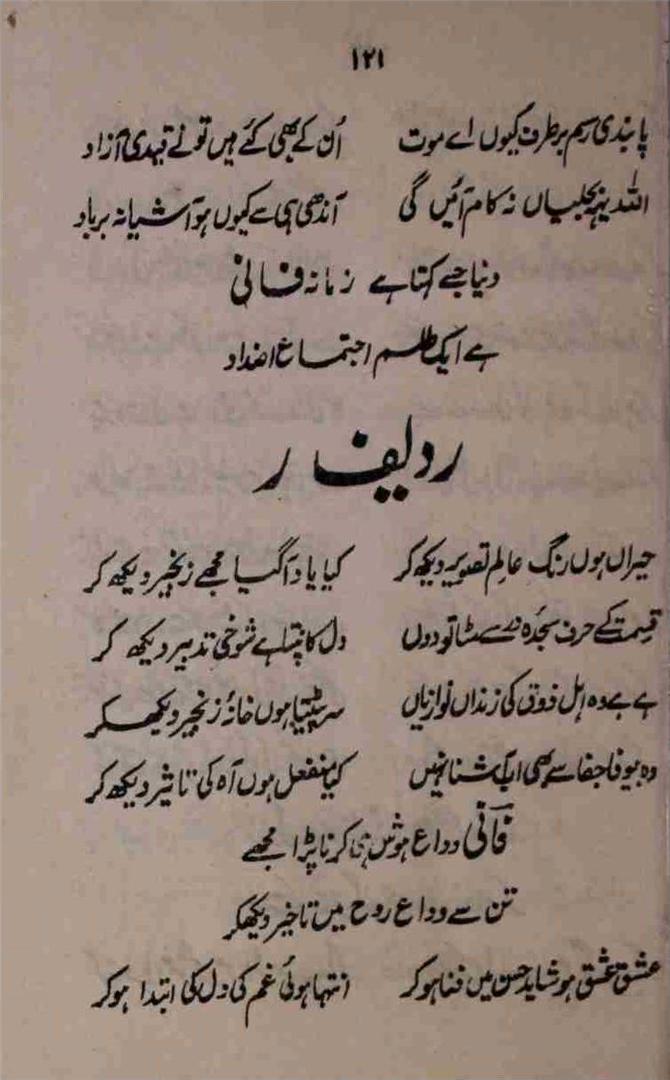 ۱۲۱
پابندی رسم برطرف کیوں اے موت اُن کے بھی کئے ہیں تو نے قیدی آزاد
اللہ یہ بجلیاں نہ کام آئیں گی آندھی ہی سے کیوں ہو آشیانہ برباد
دنیا جسے کہتا ہے زمانہ فانی
ہے ایک طلسم اجتماع اضداد
ردیف ر
حیراں ہوں رنگ عالم تصویر دیکھ کر کیا یاد آگیا مجھے زنجیر دیکھ کر
قسمت کے حرف سجدۂ در سے مٹا تو دوں دل کانپتا ہے شوخیِ تدبیر دیکھ کر
ہے ہے وہ اہل ذوق کی زنداں نوازیاں سر پیٹتا ہوں خانۂ زنجیر دیکھکر
وہ بیوفا جفا سے بھی اب آشنا نہیں کیا منفعل ہوں آہ کی تاثیر دیکھ کر
فانیؔ وداع ہوش ہی کرنا پڑا مجھے
تن سے وداع روح میں تاخیر دیکھکر
عشق عشق ہو شاید حسن میں فنا ہو کر انتہا ہوئی غم کی دل کی ابتدا ہو کر